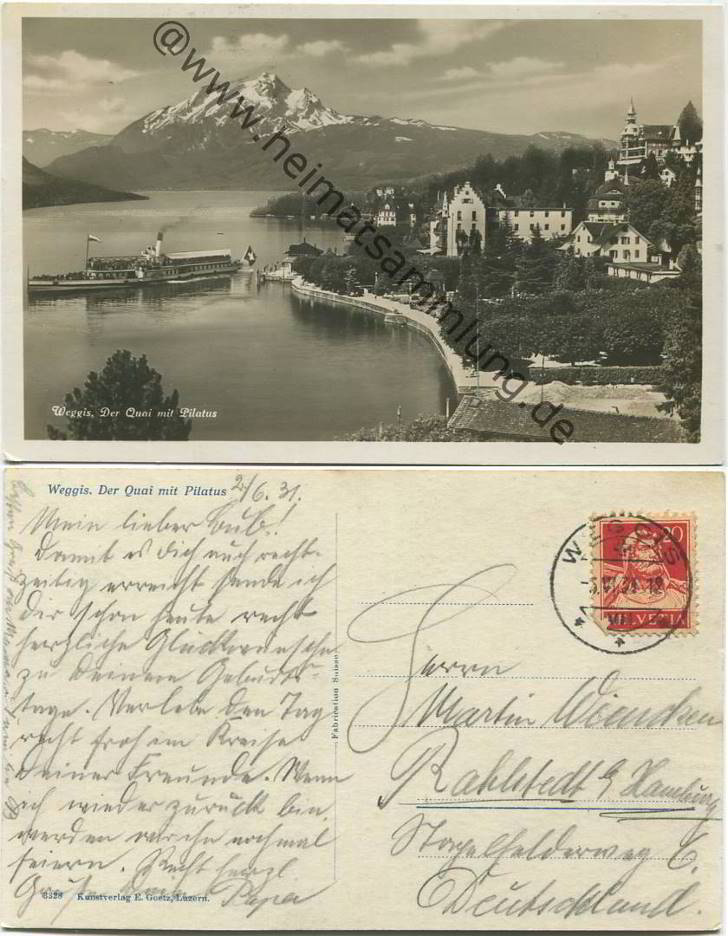 @www.heimatsammlung.de
Weggis. Der Quai mit Pilatus
Weggis. Der Quai mit Pilatus 2/6.31.
Mein lieber Bub!
Damit es Dich auch recht-
zeitig erreicht sende ich
Dir schon heute recht
herzliche Glückwünsche
zu Deinem Geburts-
tage. Verlebe den Tag
recht froh im Kreise
Deiner Freunde. Wenn
ich wieder zurück bin
werden wir ihn nochmal
feiern. Recht herzl.
Grüße Dein Papa
6328 Kunstverlag E. Goetz, Luzern.
Fabrication Suisse
WEGGIS
20
HELVETIA
Herrn
Martin Wencken
Rahlstedt b/ Hamburg
Stapelfelderweg 6.
Deutschland.